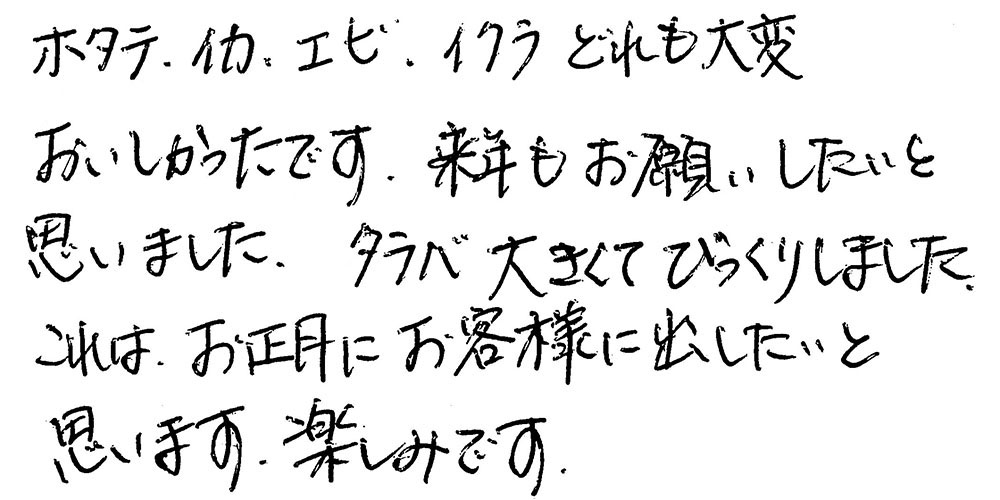 ホタテ.イカ.エビ.イクラ どれも大変
おいしかったです. 来年もお願いしたいと
思いました. タラバ 大きくてびっくりしました.
これは.お正月にお客様に出したいと
思います.楽しみです.